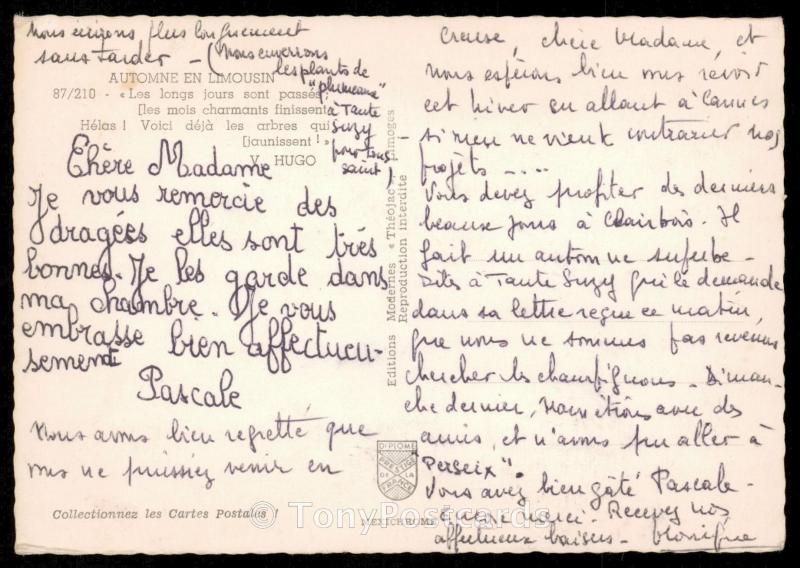 Nous écrirons plus longuement
sans tarder - (Nous enverrons
les plants de
"plumeaux"
à Tante
Suzy
pour Tous
saint)
AUTOMNE EN LIMOUSIN
87/210 - « Les longs jours sont passés;
[les mois charmants finissent
Hélas ! Voici déjà les arbres qui
[jaunissent ! »
V. HUGO
Chère Madame
Je vous remercie des
dragées elles sont très
bonnes. Je les garde dans
ma chambre. Je vous
embrasse bien affectueu-
sement
Pascale
Nous avons bien regretté que
vous ne puissiez venir en
Creuse, chère Madame, et
nous espérons bien vous revoir
cet hiver en allant à Cannes
si rien ne vient contrarier nos
projets .....
Vous devez profiter des derniers
beaux jours à Clairbois. Il
fait un automne superbe -
Dites à Tante Suzy qui le demande
dans sa lettre reçue ce matin,
que nous ne sommes pas revenus
chercher les champignons - Diman-
che dernier, nous étions avec des
amis, et n'avons pu aller à
"Perseix".
Vous avez bien gâté Pascale -
encore merci. Recevez nos
affectueux baisers - Monique
Editions Modernes « Théojac » Limoges
Reproduction interdite
DIPLOME
PRESTIGE
DE LA
FRANCE
Collectionnez les Cartes Postales !
MEXICHROME
© TonyPostcards